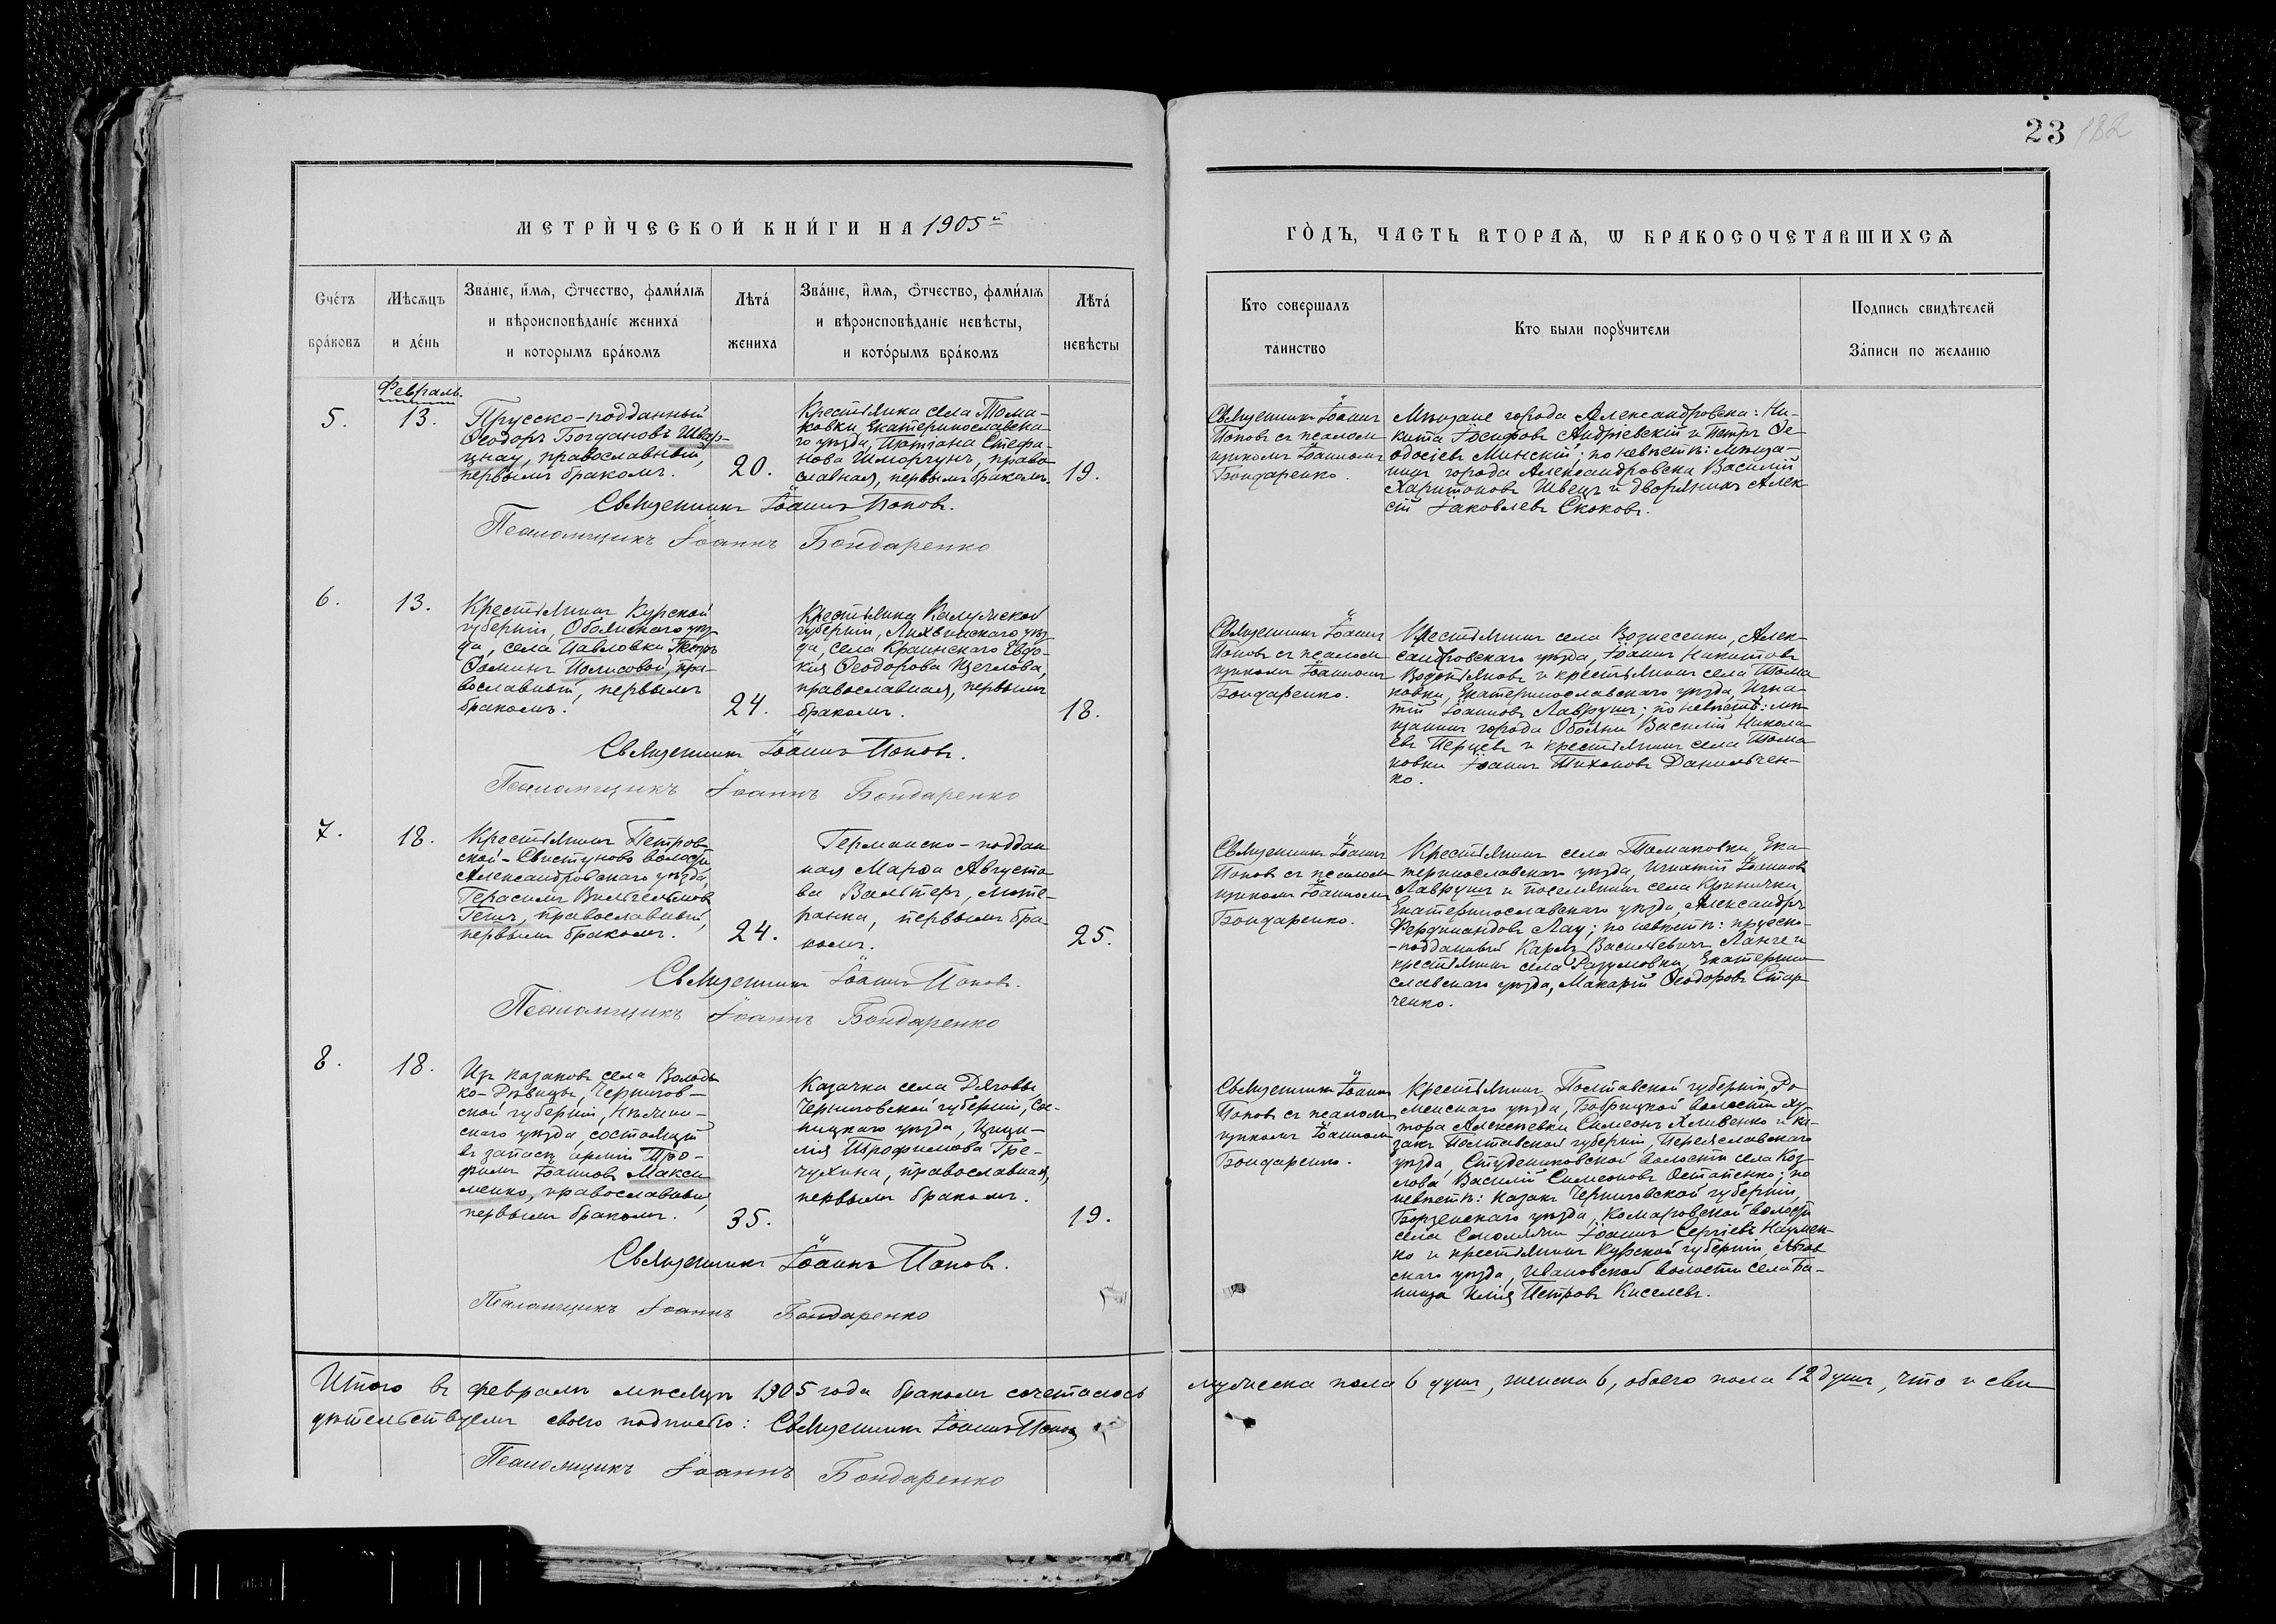 23
182
МЕТРИ́ЧЕСКОЙ КНИ́ГИ НА 1905й
ГО́ДЪ, ЧАСТЬ ВТОРАѦ, Ѡ БРАКОСОЧЕТАВШИХСѦ
Сче́тъ
бра́ковъ
Мѣсѧцъ
и де́нь
Зва́нїе, и́мѧ, ѻ́тчество, фами́лїѧ
и вѣроисповѣда́нїе жениха́
и которымъ бра́комъ
Лѣта́
жениха
Зва́нїе, и́мѧ, ѻ́тчество, фами́лїѧ
и вѣроисповѣданїе невѣсты,
и кото́рымъ бра́комъ
Лѣта́
невѣсты
Кто совершалъ
таинство
Кто были порꙋчители
Подпись свидѣтелей
За́писи по желанїю
Февраль.
5.
13.
Прусско-подданный
Ѳеодоръ Богдановъ Швар-
цнау, православный,
первымъ бракомъ.
20.
Крестьянка села Тома-
ковки, Екатеринославска-
го уѣзда, Татіана Стефа-
нова Шморгунъ, право-
славная, первымъ бракомъ.
19.
Священникъ Іоаннъ Поповъ.
Псаломщикъ Іоаннъ Бондаренко
Священникъ Іоаннъ
Поповъ съ псалом-
щикомъ Іоанномъ
Бондаренко.
Мѣщане города Александровска: Ни-
кита Іосифовъ Андріевскій и Петръ Ѳе-
одосіевъ Минскій; по невѣстѣ: мѣща-
нинъ города Александровска Василій
Харитоновъ Швецъ и дворянинъ Алек-
сій Іаковлевъ Скоковъ.
6.
13.
Крестьянинъ Курской
губерніи, Обоянскаго уѣз-
да, села Павловки Петръ
Ѳоминъ пра-
вославный, первымъ
бракомъ.
24.
Крестьянка Калужской
губерніи, Лихвинскаго уѣз-
да, села Краинскаго Евдо-
кія Ѳеодорова Щеглова,
православная, первымъ
бракомъ.
18.
Священникъ Іоаннъ Поповъ.
Псаломщикъ Іоаннъ Бондаренко
Священникъ Іоаннъ
Поповъ съ псалом-
щикомъ Іоанномъ
Бондаренко.
Крестьянинъ села Вознесенки, Алек-
сандровскаго уѣзда, Іоаннъ Никитовъ
Водопьяновъ и крестьянинъ села Тома-
ковки, Екатеринославскаго уѣзда, Игна-
тій Іоанновъ Лаврушъ; по невѣстѣ: мѣ-
щанинъ города Обояни Василій Никола-
евъ Перцевъ и крестьянинъ села Тома-
ковки Іоаннъ Тихоновъ Данильчен-
ко.
7.
18.
Крестьянинъ Петров-
ской-Свистуново волости
Александровскаго уѣзда,
Герасимъ Вильгельмовъ
Гешъ, православный,
первымъ бракомъ.
24.
Германско-поддан
ная Марѳа Августо-
ва Вальтеръ, люте-
ранка, первымъ бра-
комъ.
25.
Священникъ Іоаннъ Поповъ.
Псаломщикъ Іоаннъ Бондаренко
Священникъ Іоаннъ
Поповъ съ псалом-
щикомъ Іоанномъ
Бондаренко.
Крестьянинъ села Томаковки, Ека-
теринославскаго уѣзда, Игнатій Іоанновъ
Лаврушъ и поселянинъ села Кринички,
Екатеринославскаго уѣзда, Александръ
Фердинандовъ Лау; по невѣстѣ: прусско-
-подданный Карлъ Васильевичъ Ланге и
крестьянинъ села Разумовки, Екатерино-
славскаго уѣзда, Макарій Ѳеодоровъ Стар-
ченко.
8.
18.
Изъ казаковъ села Володь-
ко-Дѣвицы, Чернигов-
ской губерніи, Нѣжин-
скаго уѣзда, состоящій
въ запасѣ арміи Тро-
фимъ Іоанновъ Макси-
менко, православный,
первымъ бракомъ.
35.
Казачка села Дяговы,
Черниговской губерніи, Сос-
ницкаго уѣзда, Цици-
лія Трофимова Гре-
чухина, православная,
первымъ бракомъ.
19.
Священникъ Іоаннъ Поповъ.
Псаломщикъ Іоаннъ Бондаренко
Священникъ Іоаннъ
Поповъ съ псалом-
щикомъ Іоанномъ
Бондаренко.
Крестьянинъ Полтавской губерніи, Ро-
менскаго уѣзда, Бобрицкой волости ху-
тора Алексѣевки Симеонъ Хливенко и ка-
закъ Полтавской губерніи, Переяславскаго
уѣзда, Студениковской волости села Коз-
лова Василій Симеоновъ Остапенко; по
невѣстѣ: казакъ Черниговской губерніи,
Борзенскаго уѣзда, Комаровской волости
села Іоаннъ Сергіевъ Наумен-
ко и крестьянинъ Курской губерніи, Льгов-
скаго уѣзда, Ивановской волости села
Илія Петровъ Киселевъ.
Итого въ февралѣ мѣсяцѣ 1905 года бракомъ сочеталось мужеска пола 6 душъ, женска 6, обоего пола 12 душъ, что и сви-
дѣтельствуемъ своею подписью: Священникъ Іоаннъ Поповъ
Псаломщикъ Іоаннъ Бондаренко